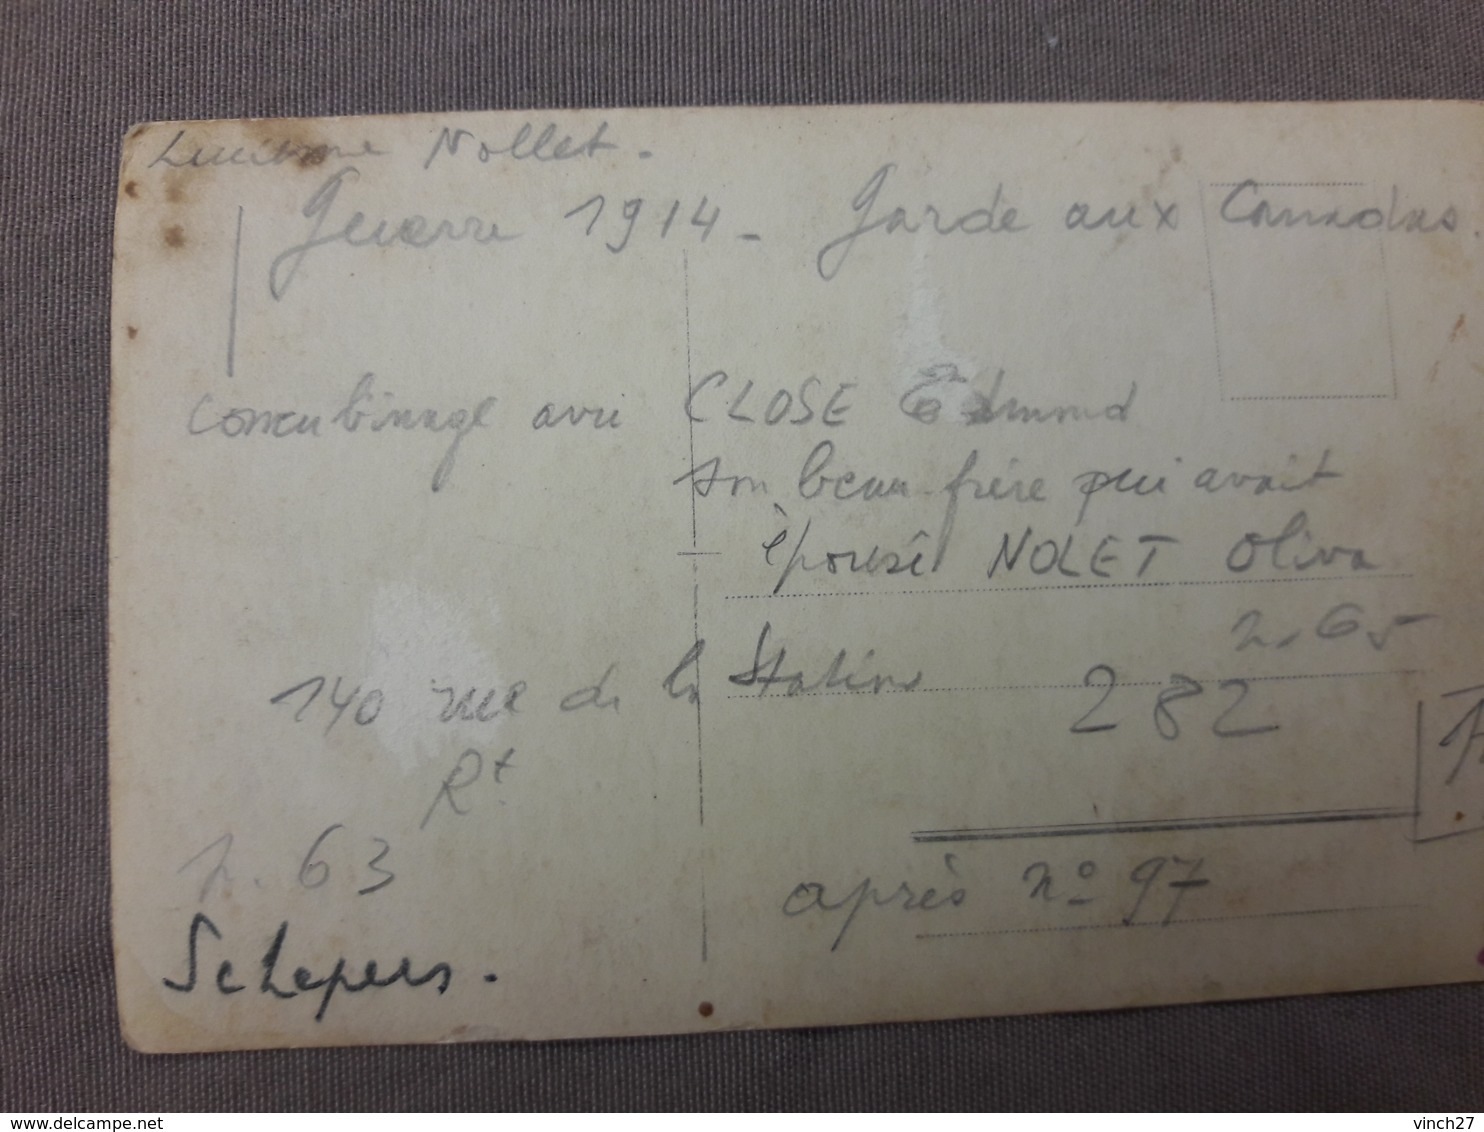 Nollet.
Guerre 1914 - Garde aux Canadas.
concubinage avec CLOSE Edmond
son beau frère qui avait
épousé NOLET Oliva
n. 65
140 rue de la Station 282
Rt
n. 63
après nº 97
Schepers.
vinch27